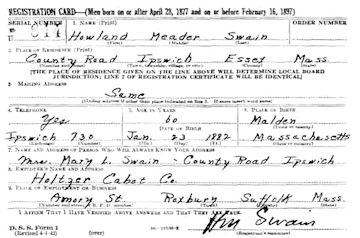 REGISTRATION CARD—(Men born on or after April 28, 1877 and on or before February 16, 1897)
SERIAL NUMBER 1. NAME (Print) ORDER NUMBER
U Howland Meader Swain
(First) (Middle) (Last)
2. PLACE OF RESIDENCE (Print)
County Road Ipswich Essex Mass
(Number and street) (Town, township, village, or city) (County) (State)
[THE PLACE OF RESIDENCE GIVEN ON THE LINE ABOVE WILL DETERMINE LOCAL BOARD
JURISDICTION; LINE 2 OF REGISTRATION CERTIFICATE WILL BE IDENTICAL]
3. MAILING ADDRESS
Same
(Mailing address if other than place indicated on line 2. If same insert word same)
4. TELEPHONE 5. AGE IN YEARS 6. PLACE OF BIRTH
Yes 60 Malden
DATE OF BIRTH (Town or county)
Ipswich 730 Jan. 23 1882 Massachusetts
(Exchange) (Number) (Mo.) (Day) (Yr.) (State or country)
7. NAME AND ADDRESS OF PERSON WHO WILL ALWAYS KNOW YOUR ADDRESS
Mrs. Mary L. Swain - County Road Ipswich
8. EMPLOYER'S NAME AND ADDRESS
Holtzer Cabot Co.
9. PLACE OF EMPLOYMENT OR BUSINESS
Amory St. Roxbury Suffolk Mass.
(Number and street or R. F. D. number) (Town) (County) (State)
I AFFIRM THAT I HAVE VERIFIED ABOVE ANSWERS AND THAT THEY ARE TRUE.
D. S. S. Form 1 Swain
(Revised 4-1-42) (over)